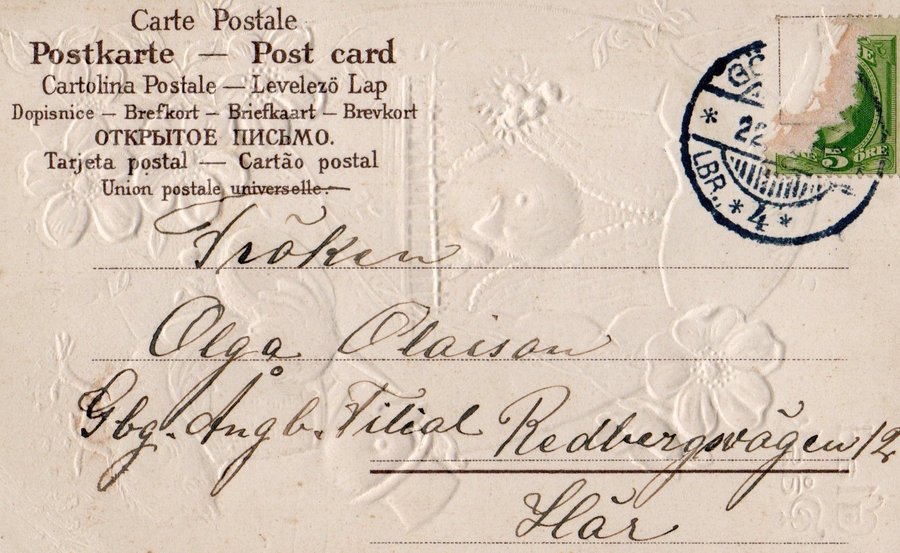 Carte Postale
Postkarte — Post card
Cartolina Postale — Levelező Lap
Dopisnice – Brefkort – Briefkaart – Brevkort
ОТКРЫТОЕ ПИСЬМО.
Tarjeta postal — Cartão postal
Union postale universelle.
Fröken
Olga Olasson
Gbg. Ångb. Filial Redbergsvägen 12
Här
GÖ
22
LBR.
* 4 *
5 ÖRE